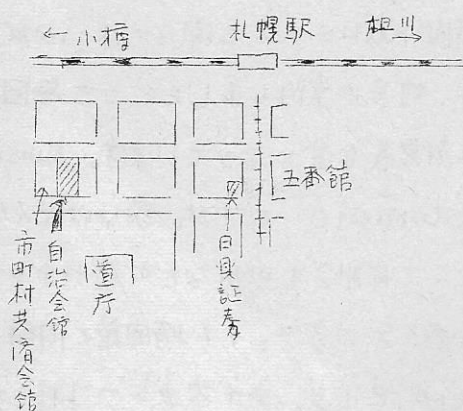 ← 小樽
札幌駅
旭川 →
五番館
日興証券
道庁
自治会館
市町村共済会館